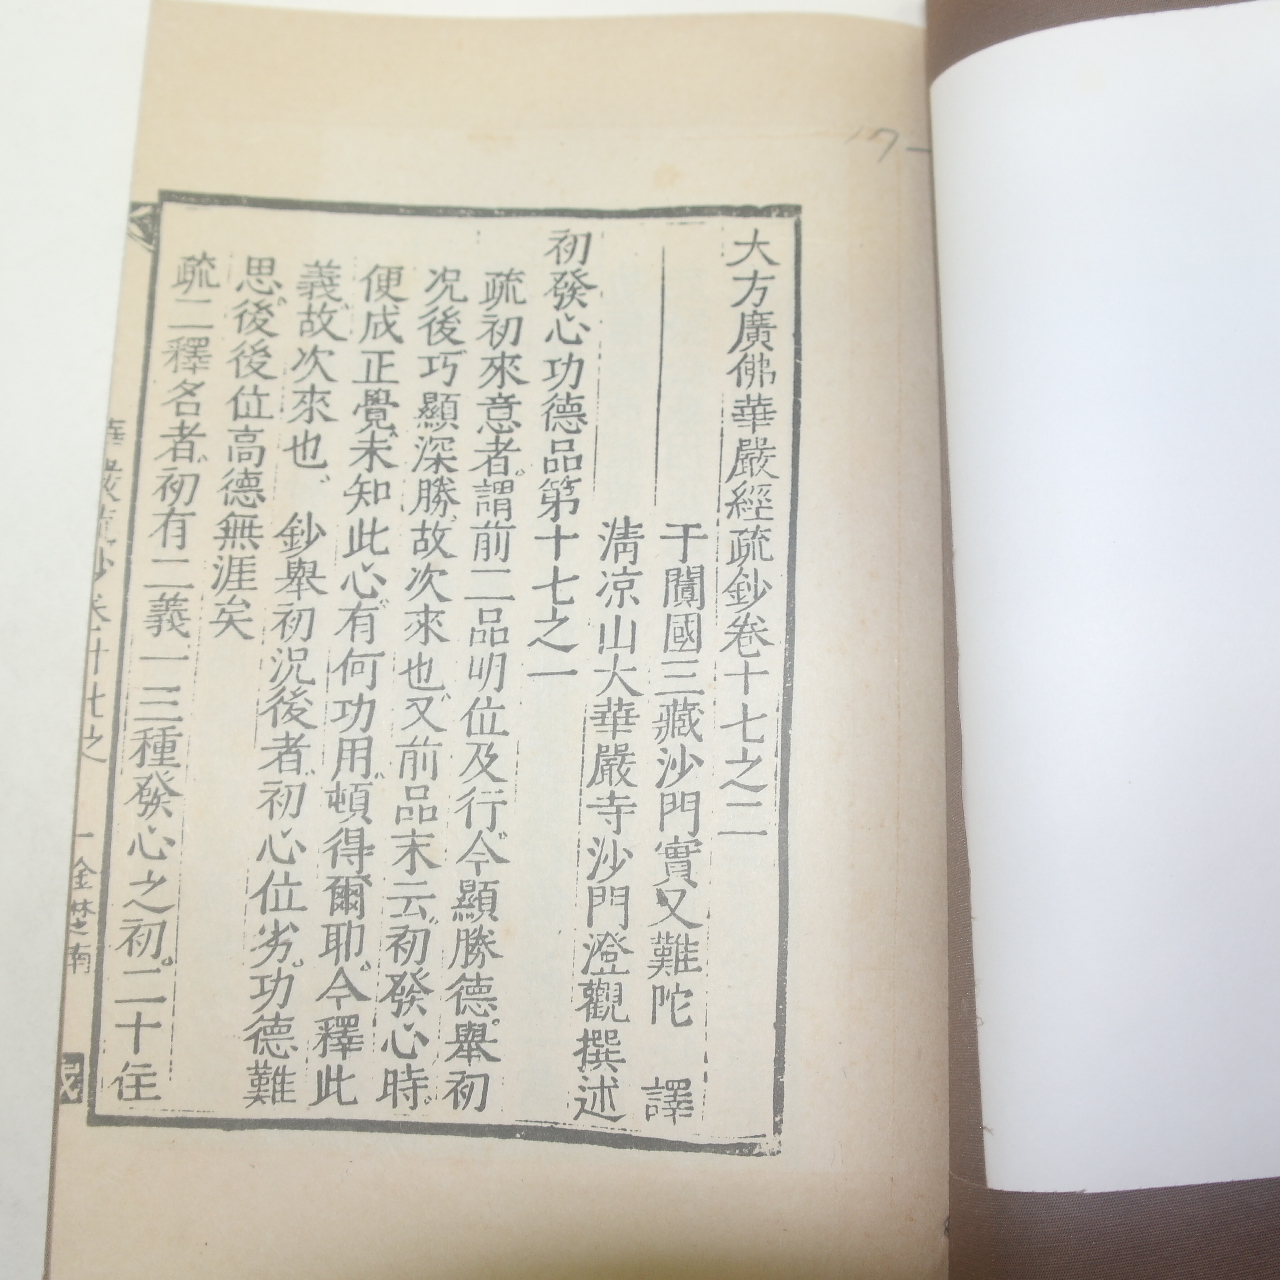 17-
大方廣佛華嚴經疏鈔卷十七之二
于闐國三藏沙門實叉難陀　譯
清凉山大華嚴寺沙門澄觀撰述
初發心功德品第十七之一
疏初來意者。謂前二品明位及行。今顯勝德。舉初
况後巧顯深勝。故次來也。又前品末云。初發心時。
便成正覺。未知此心。有何功用。頓得爾耶。今釋此
義。故次來也、　鈔舉初況後者。初心位劣。功德難
思。後後位高德無涯矣
疏二釋名者。初有二義一三種發心之初。二十住
華嚴疏鈔卷十七之　一　金陵南